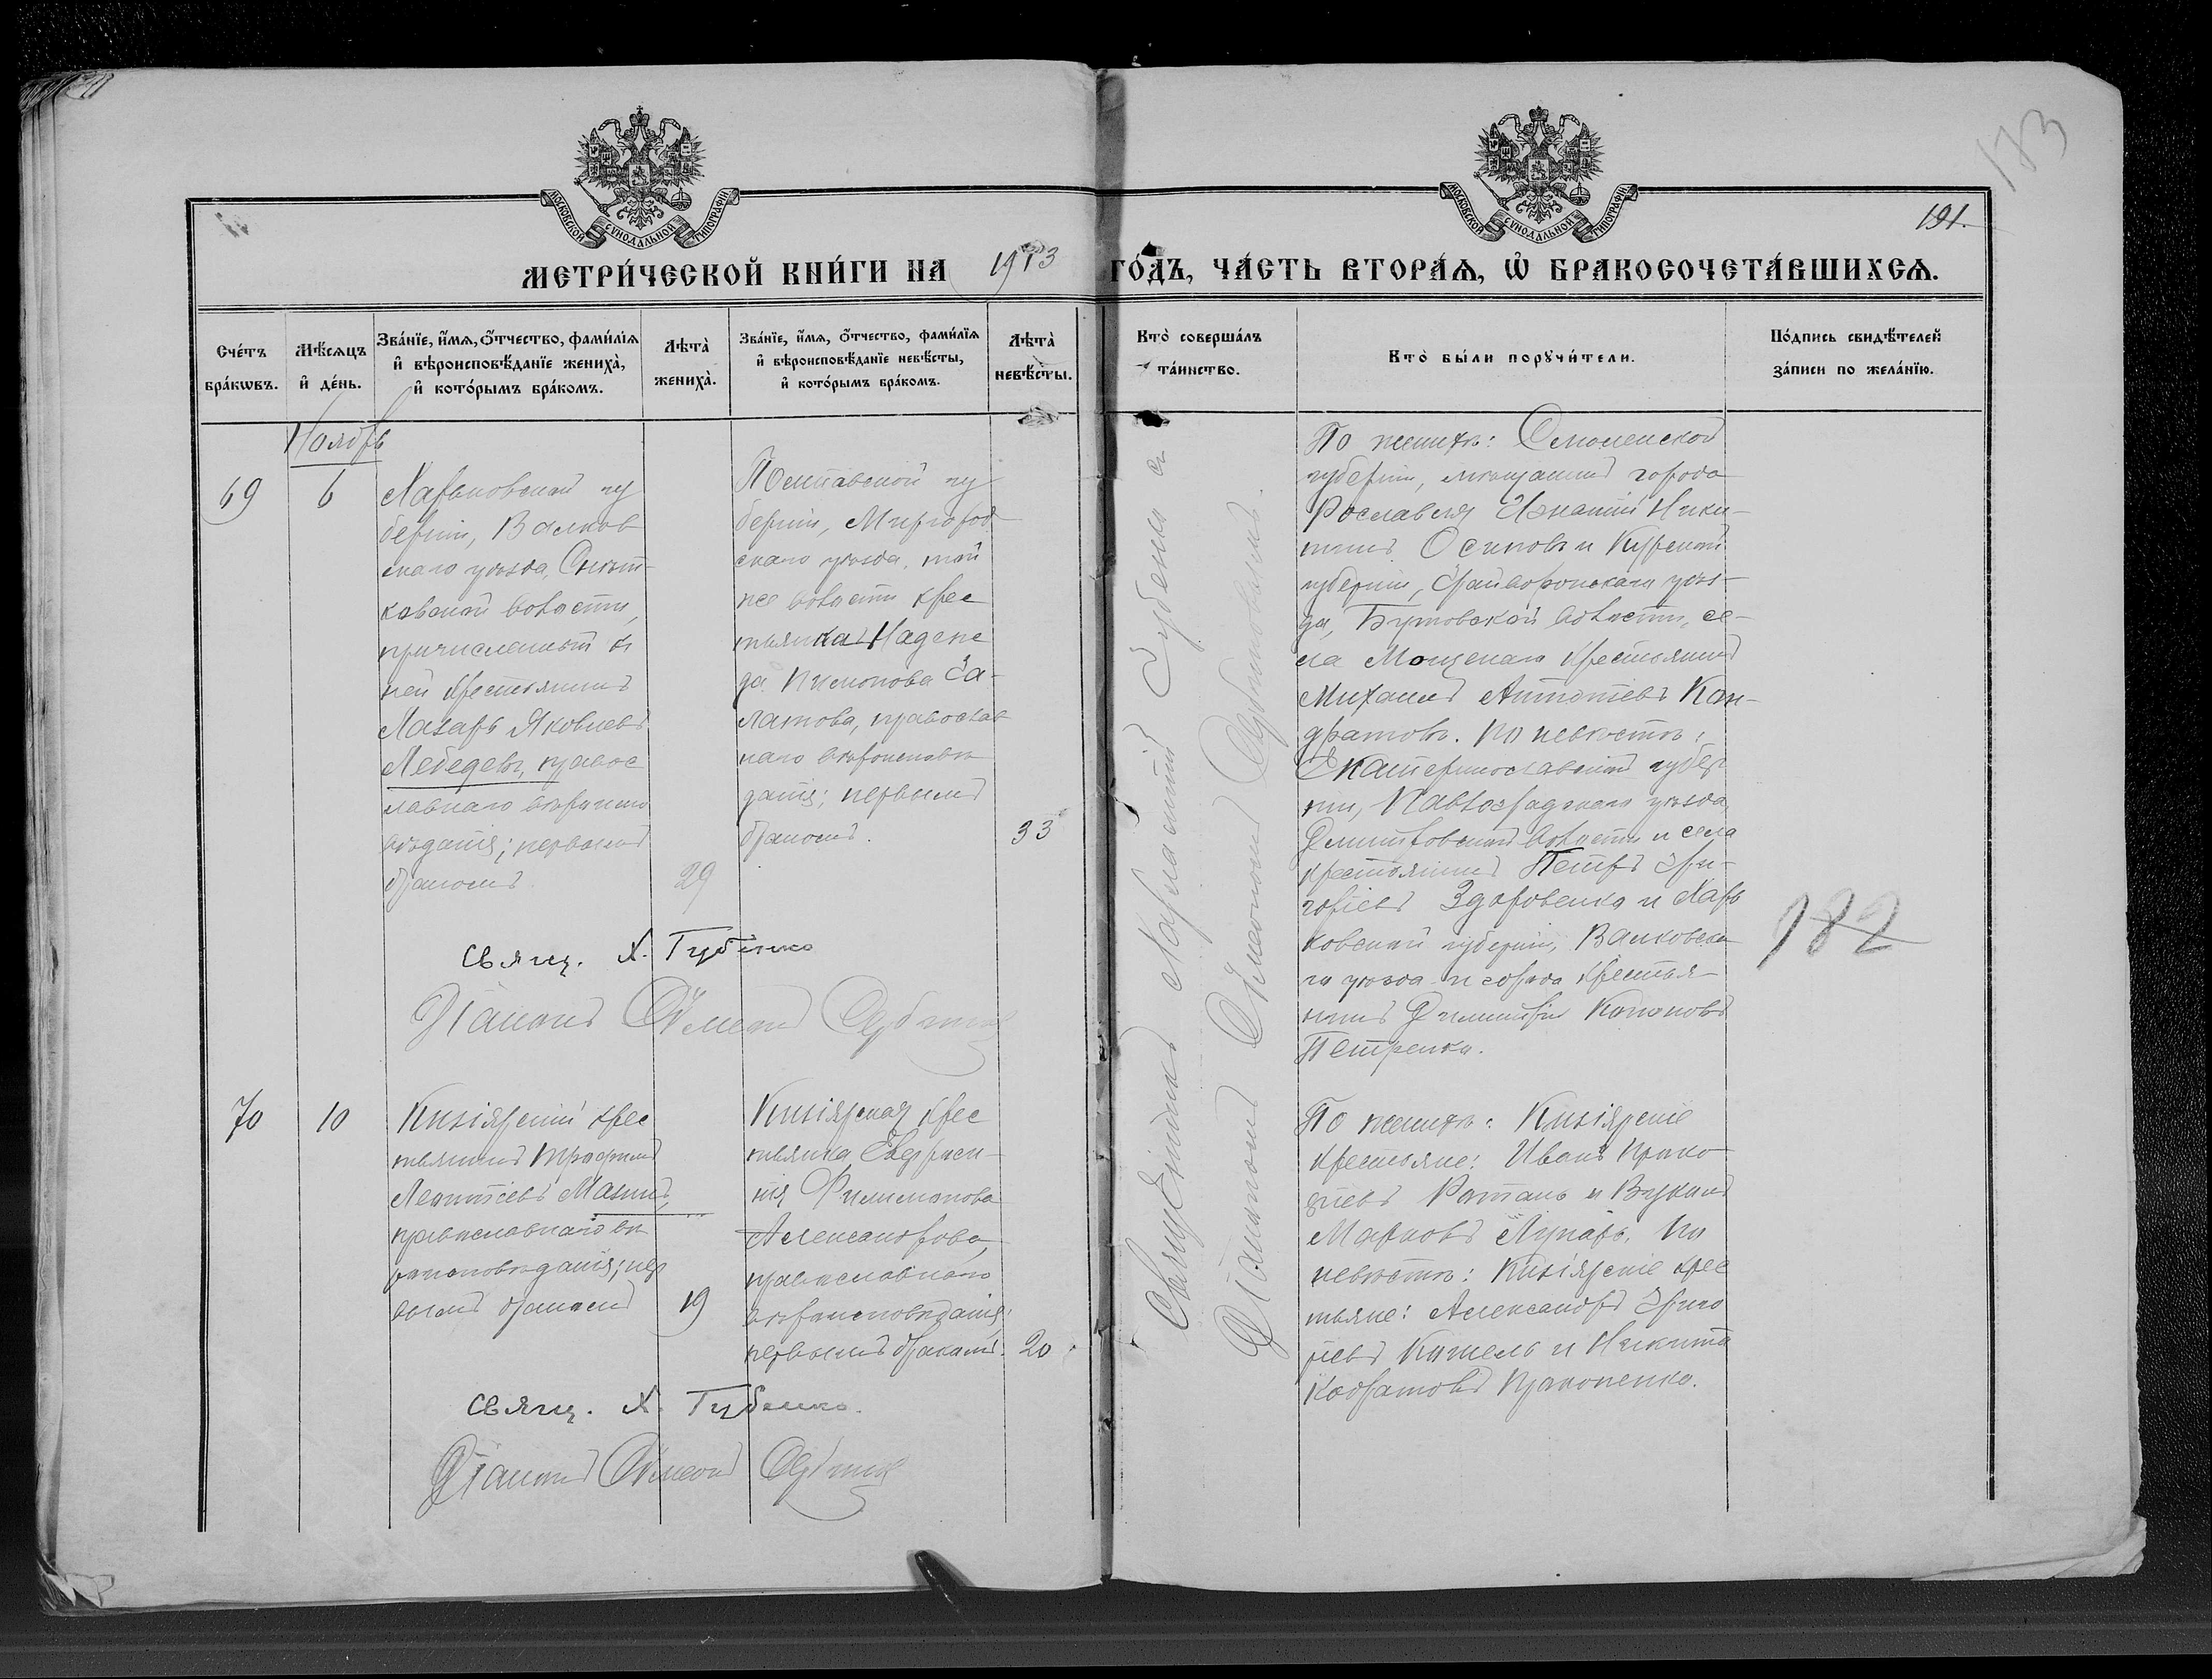 183
191.
МОСКОВСКОЙ СѴНОДАЛЬНОЙ ТИПОГРАФІИ
МОСКОВСКОЙ СѴНОДАЛЬНОЙ ТИПОГРАФІИ
МЕТРИ́ЧЕСКОЙ КНИ́ГИ НА 1913 ГО́ДЪ, ЧА́СТЬ ВТОРА́Ѧ, Ѽ БРАКОСОЧЕТА́ВШИХСѦ.
Сче́тъ бра́кѡвъ.
Мѣ́сѧцъ и҆ де́нь.
Зва́нїе, и҆́мѧ, ѻ҆́тчество, фами́лїѧ и҆ вѣроисповѣ́данїе жениха̀, и҆ кото́рымъ бра́комъ.
Лѣта̀ жениха̀.
Зва́нїе, и҆́мѧ, ѻ҆́тчество, фами́лїѧ и҆ вѣроисповѣ́данїе невѣ́сты, и҆ кото́рымъ бра́комъ.
Лѣта̀ невѣ́сты.
Кто̀ соверша́лъ та́инство.
Кто̀ бы́ли порꙋчи́тели.
По́дпись свидѣ́телей за́писи по жела́нїю.
Ноябрь
69
6
Харьковской гу
берніи, Валков
скаго уѣзда,
ковской волости,
причисленный къ
ней крестьянинъ
Лазарь Яковлевъ
Лебедевъ, правос
лавнаго вѣроиспо
вѣданія; первымъ
бракомъ
29
Полтавской гу
берніи, Миргород
скаго уѣзда, той
же волости крес
тьянка Надеж
да Пимонова Са-
латова, православ
наго вѣроисповѣ
данія; первымъ
бракомъ.
33
Свящ. Х. Губенко
Діаконъ Сѷмеонъ
Священникъ Харлампій Губенко съ
Діакономъ Сѷмеономъ
По женихѣ: Смоленской
губерніи, мѣщанинъ города
Рославля Игнатій Ники-
тинъ Осиповъ и Курской
губерніи, Грайворонскаго уѣз-
да, Бутовской волости, се-
ла Мощенаго крестьянинъ
Михаилъ Антоніевъ Кон-
дратовъ. По невѣстѣ:
Екатеринославской губер
ніи, Павлоградскаго уѣзда,
Дмитровской волости и села
крестьянинъ Петръ Гри-
горіевъ Здоровенко и Харь
ковской губерніи, Валковска
го уѣзда и города крестья-
нинъ Димитрій Кононовъ
Петренко.
182
70
10
Кизіярскій крес
тьянинъ Трофимъ
Леонтіевъ Мазинъ,
православнаго вѣ
роисповѣданія; пер
вымъ бракомъ
19
Кизіярская крес
тьянка Евфроси-
нія Филимонова
Александрова,
православнаго
вѣроисповѣданія;
первымъ бракомъ.
20
Свящ. Х. Губенко.
Діаконъ Сѷмеонъ
По женихѣ: Кизіярскіе
крестьяне: Иванъ Проко
піевъ Ротань и Вуколъ
Марковъ Лупарь. По
невѣстѣ: Кизіярскіе крес
тьяне: Александръ Григо
ріевъ Кошель и Никита
Кодратовъ Прокопенко.